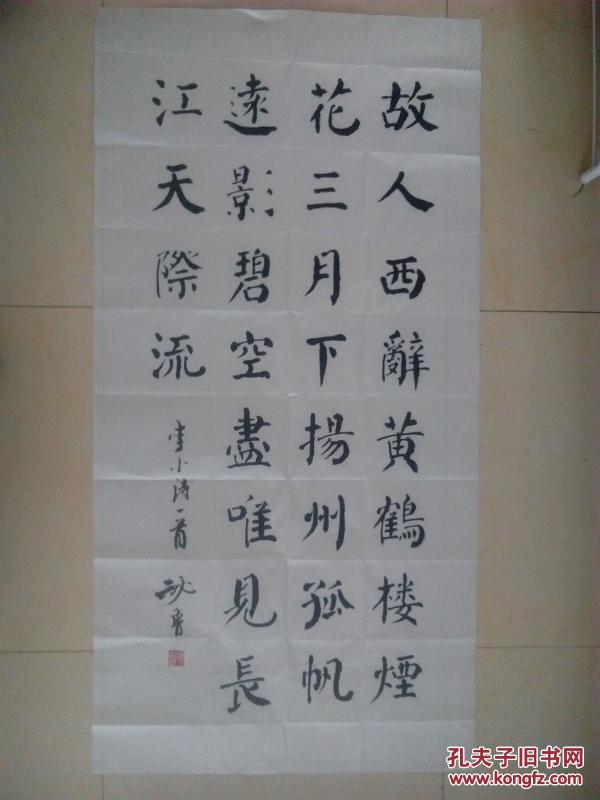 故人西辭黄鶴楼煙
花三月下揚州孤帆
遠影碧空盡唯見長
江天際流
李小诗一首
孔夫子旧书网
www.kongfz.com